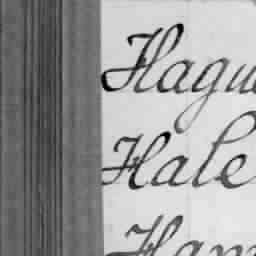 Hague
Hale
Ham